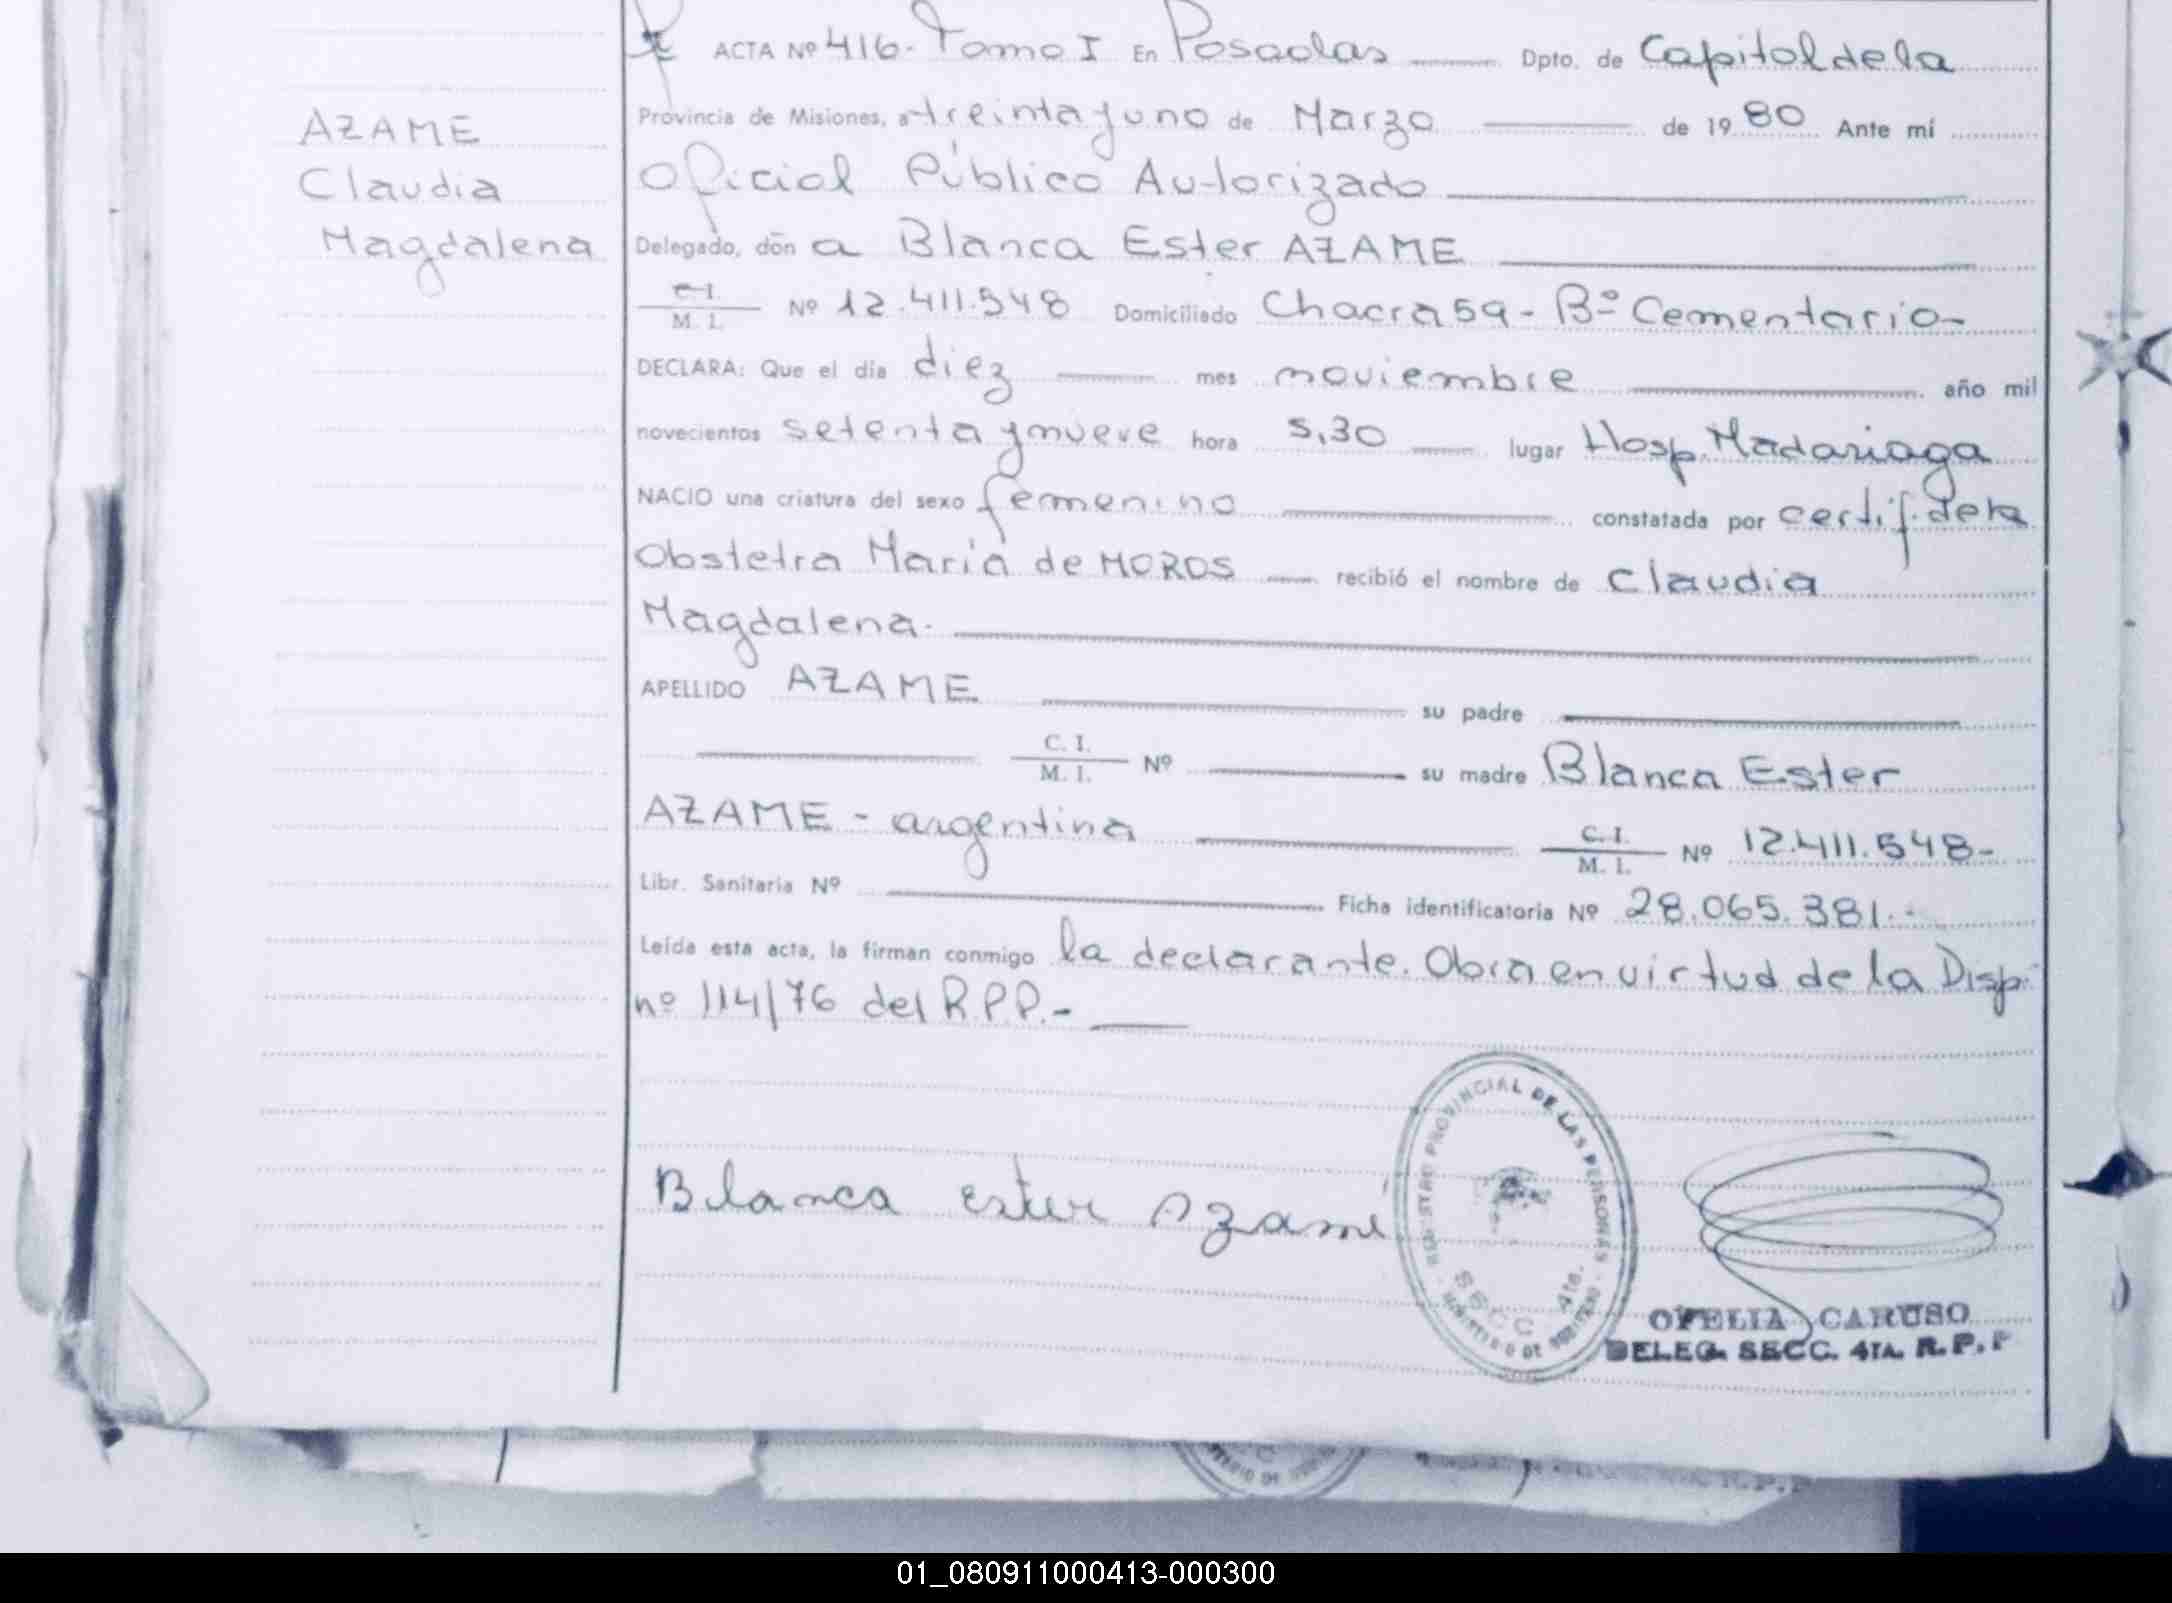 AZAME
Claudia
Magdalena
ACTA Nº 416- Tomo I En Posadas Dpto. de Capital de la
Provincia de Misiones, a treinta y uno de Marzo de 1980 Ante mí
Oficial Público Autorizado
Delegado, don a Blanca Ester AZAME
C. I.
M. I. Nº 12.411.548 Domiciliado Chacra 59 - Bº Cementario-
DECLARA: Que el día diez mes noviembre año mil
novecientos setenta y nueve hora 5,30 lugar Hosp. Madariaga
NACIO una criatura del sexo femenino constatada por certif. de la
Obstetra María de MOROS recibió el nombre de Claudia
Magdalena.
APELLIDO AZAME su padre
C. I.
M. I. Nº su madre Blanca Ester
AZAME - argentina C. I.
M. I. Nº 12.411.548-
Libr. Sanitaria Nº Ficha identificatoria Nº 28.065.381.-
Leída esta acta, la firman conmigo la declarante. Obra en virtud de la Disp.
nº 114/76 del R.P.P.-
Blanca ester Azame
REGISTRO PROVINCIAL DE LAS PERSONAS
SECC 4ta.
MINISTERIO DE GOBIERNO
OFELIA CARUSO
DELEG. SECC. 4TA. R.P.P
R.P.P
01_080911000413-000300